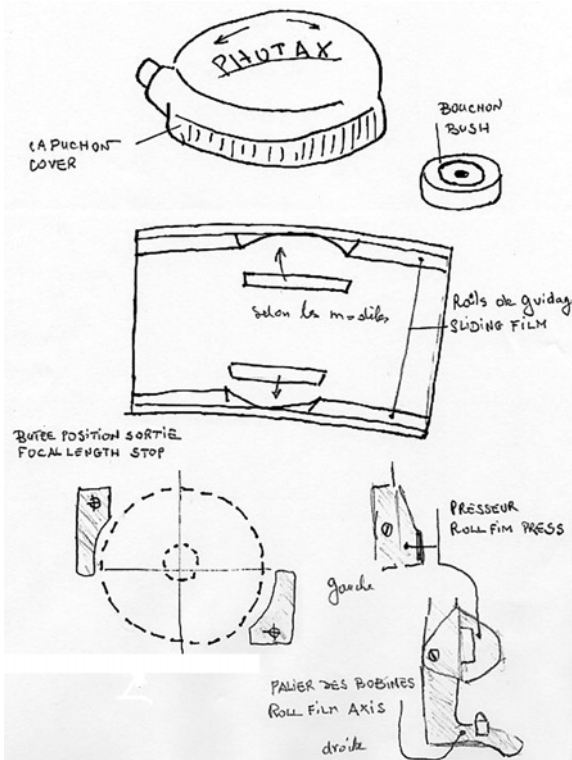 PHOTAX
CAPUCHON
COVER
BOUCHON
BUSH
selon les modèles
Rails de guidage
SLIDING FILM
BUTÉE POSITION SORTIE
FOCAL LENGTH STOP
PRESSEUR
ROLL FIM PRESS
gauche
PALIER DES BOBINES
ROLL FILM AXIS
droite